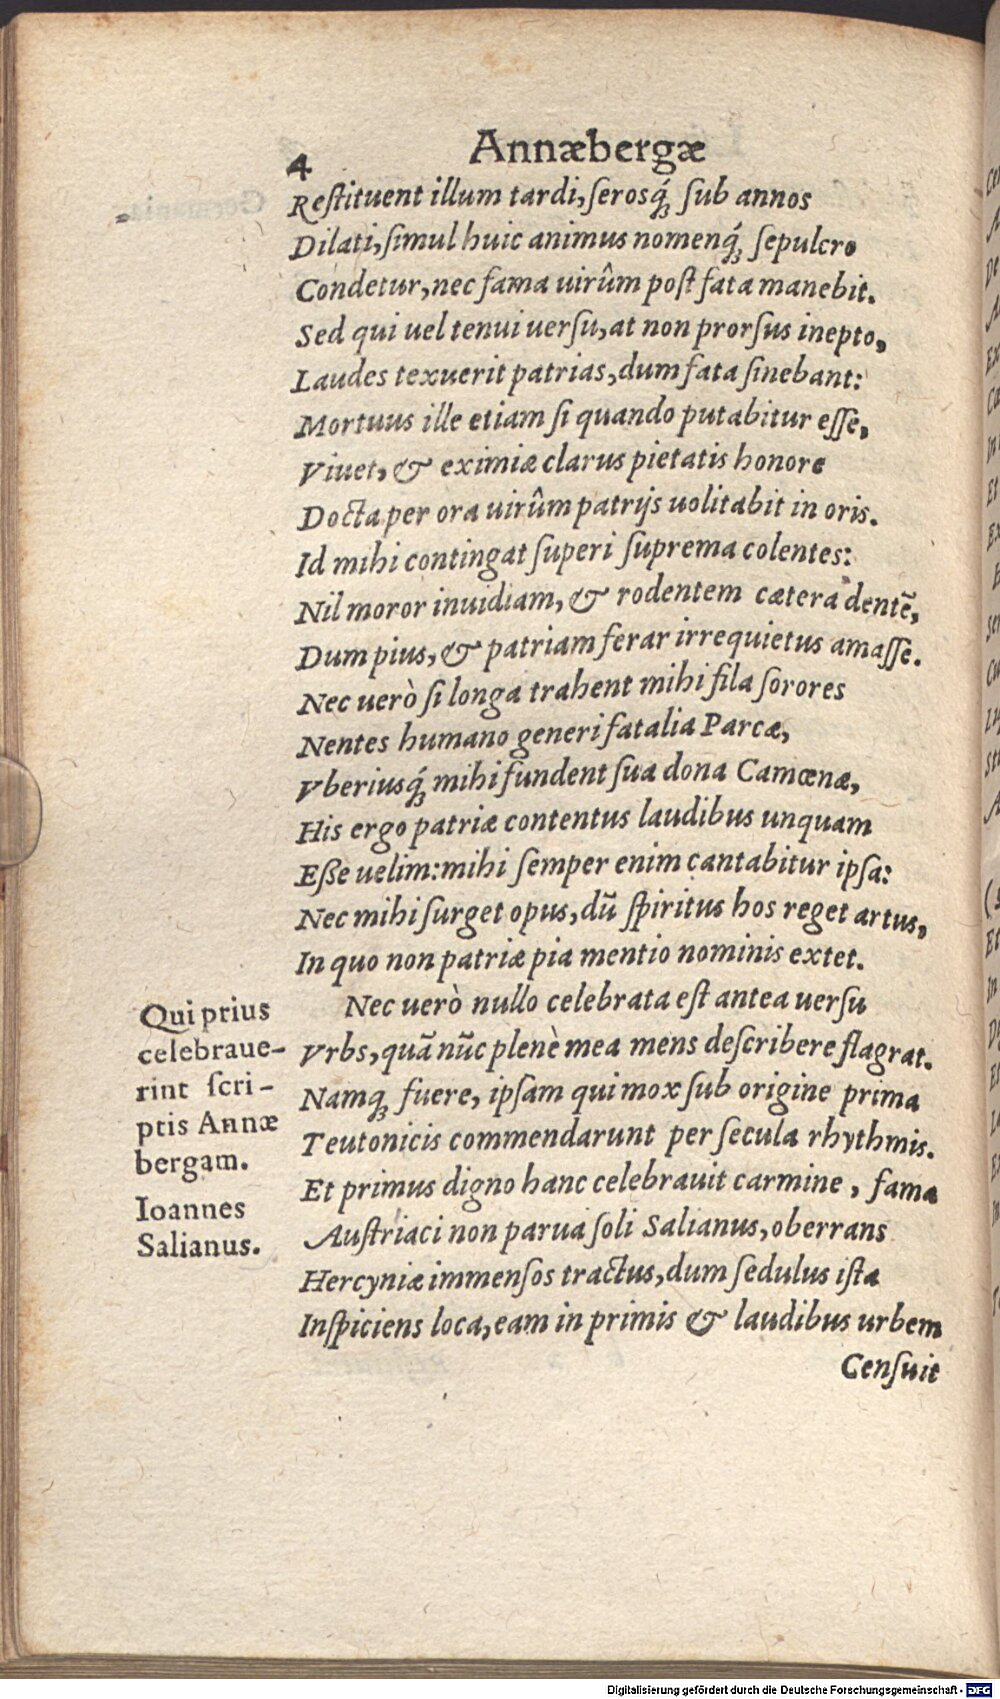 4 Annæbergæ
Reſtituent illum tardi, ſerosq́; ſub annos
Dilati, ſimul huic animus nomenq́; ſepulcro
Condetur, nec fama uirûm poſt fata manebit.
Sed qui uel tenui uerſu, at non prorſus inepto,
Laudes texuerit patrias, dum fata ſinebant:
Mortuus ille etiam ſi quando putabitur eſſe,
Viuet, & eximiæ clarus pietatis honore
Docta per ora uirûm patrijs uolitabit in oris.
Id mihi contingat ſuperi ſuprema colentes:
Nil moror inuidiam, & rodentem cætera dentẽ,
Dum pius, & patriam ferar irrequietus amaſſe.
Nec uerò ſi longa trahent mihi fila ſorores
Nentes humano generi fatalia Parcæ,
Vberiusq́; mihi fundent ſua dona Camœnæ,
His ergo patriæ contentus laudibus unquam
Eſſe uelim: mihi ſemper enim cantabitur ipſa:
Nec mihi ſurget opus, dũ ſpiritus hos reget artus,
In quo non patriæ pia mentio nominis extet.
Nec uerò nullo celebrata eſt antea uerſu
Vrbs, quã nũc plenè mea mens deſcribere flagrat.
Namq; fuere, ipſam qui mox ſub origine prima
Teutonicis commendarunt per ſecula rhythmis.
Et primus digno hanc celebrauit carmine, fama
Auſtriaci non parua ſoli Salianus, oberrans
Hercyniæ immenſos tractus, dum ſedulus iſta
Inſpiciens loca, eam in primis & laudibus urbem
Cenſuit
Qui prius
celebraue-
rint ſcri-
ptis Annæ
bergam.
Ioannes
Salianus.
Digitalisierung gefördert durch die Deutsche Forschungsgemeinschaft - DFG